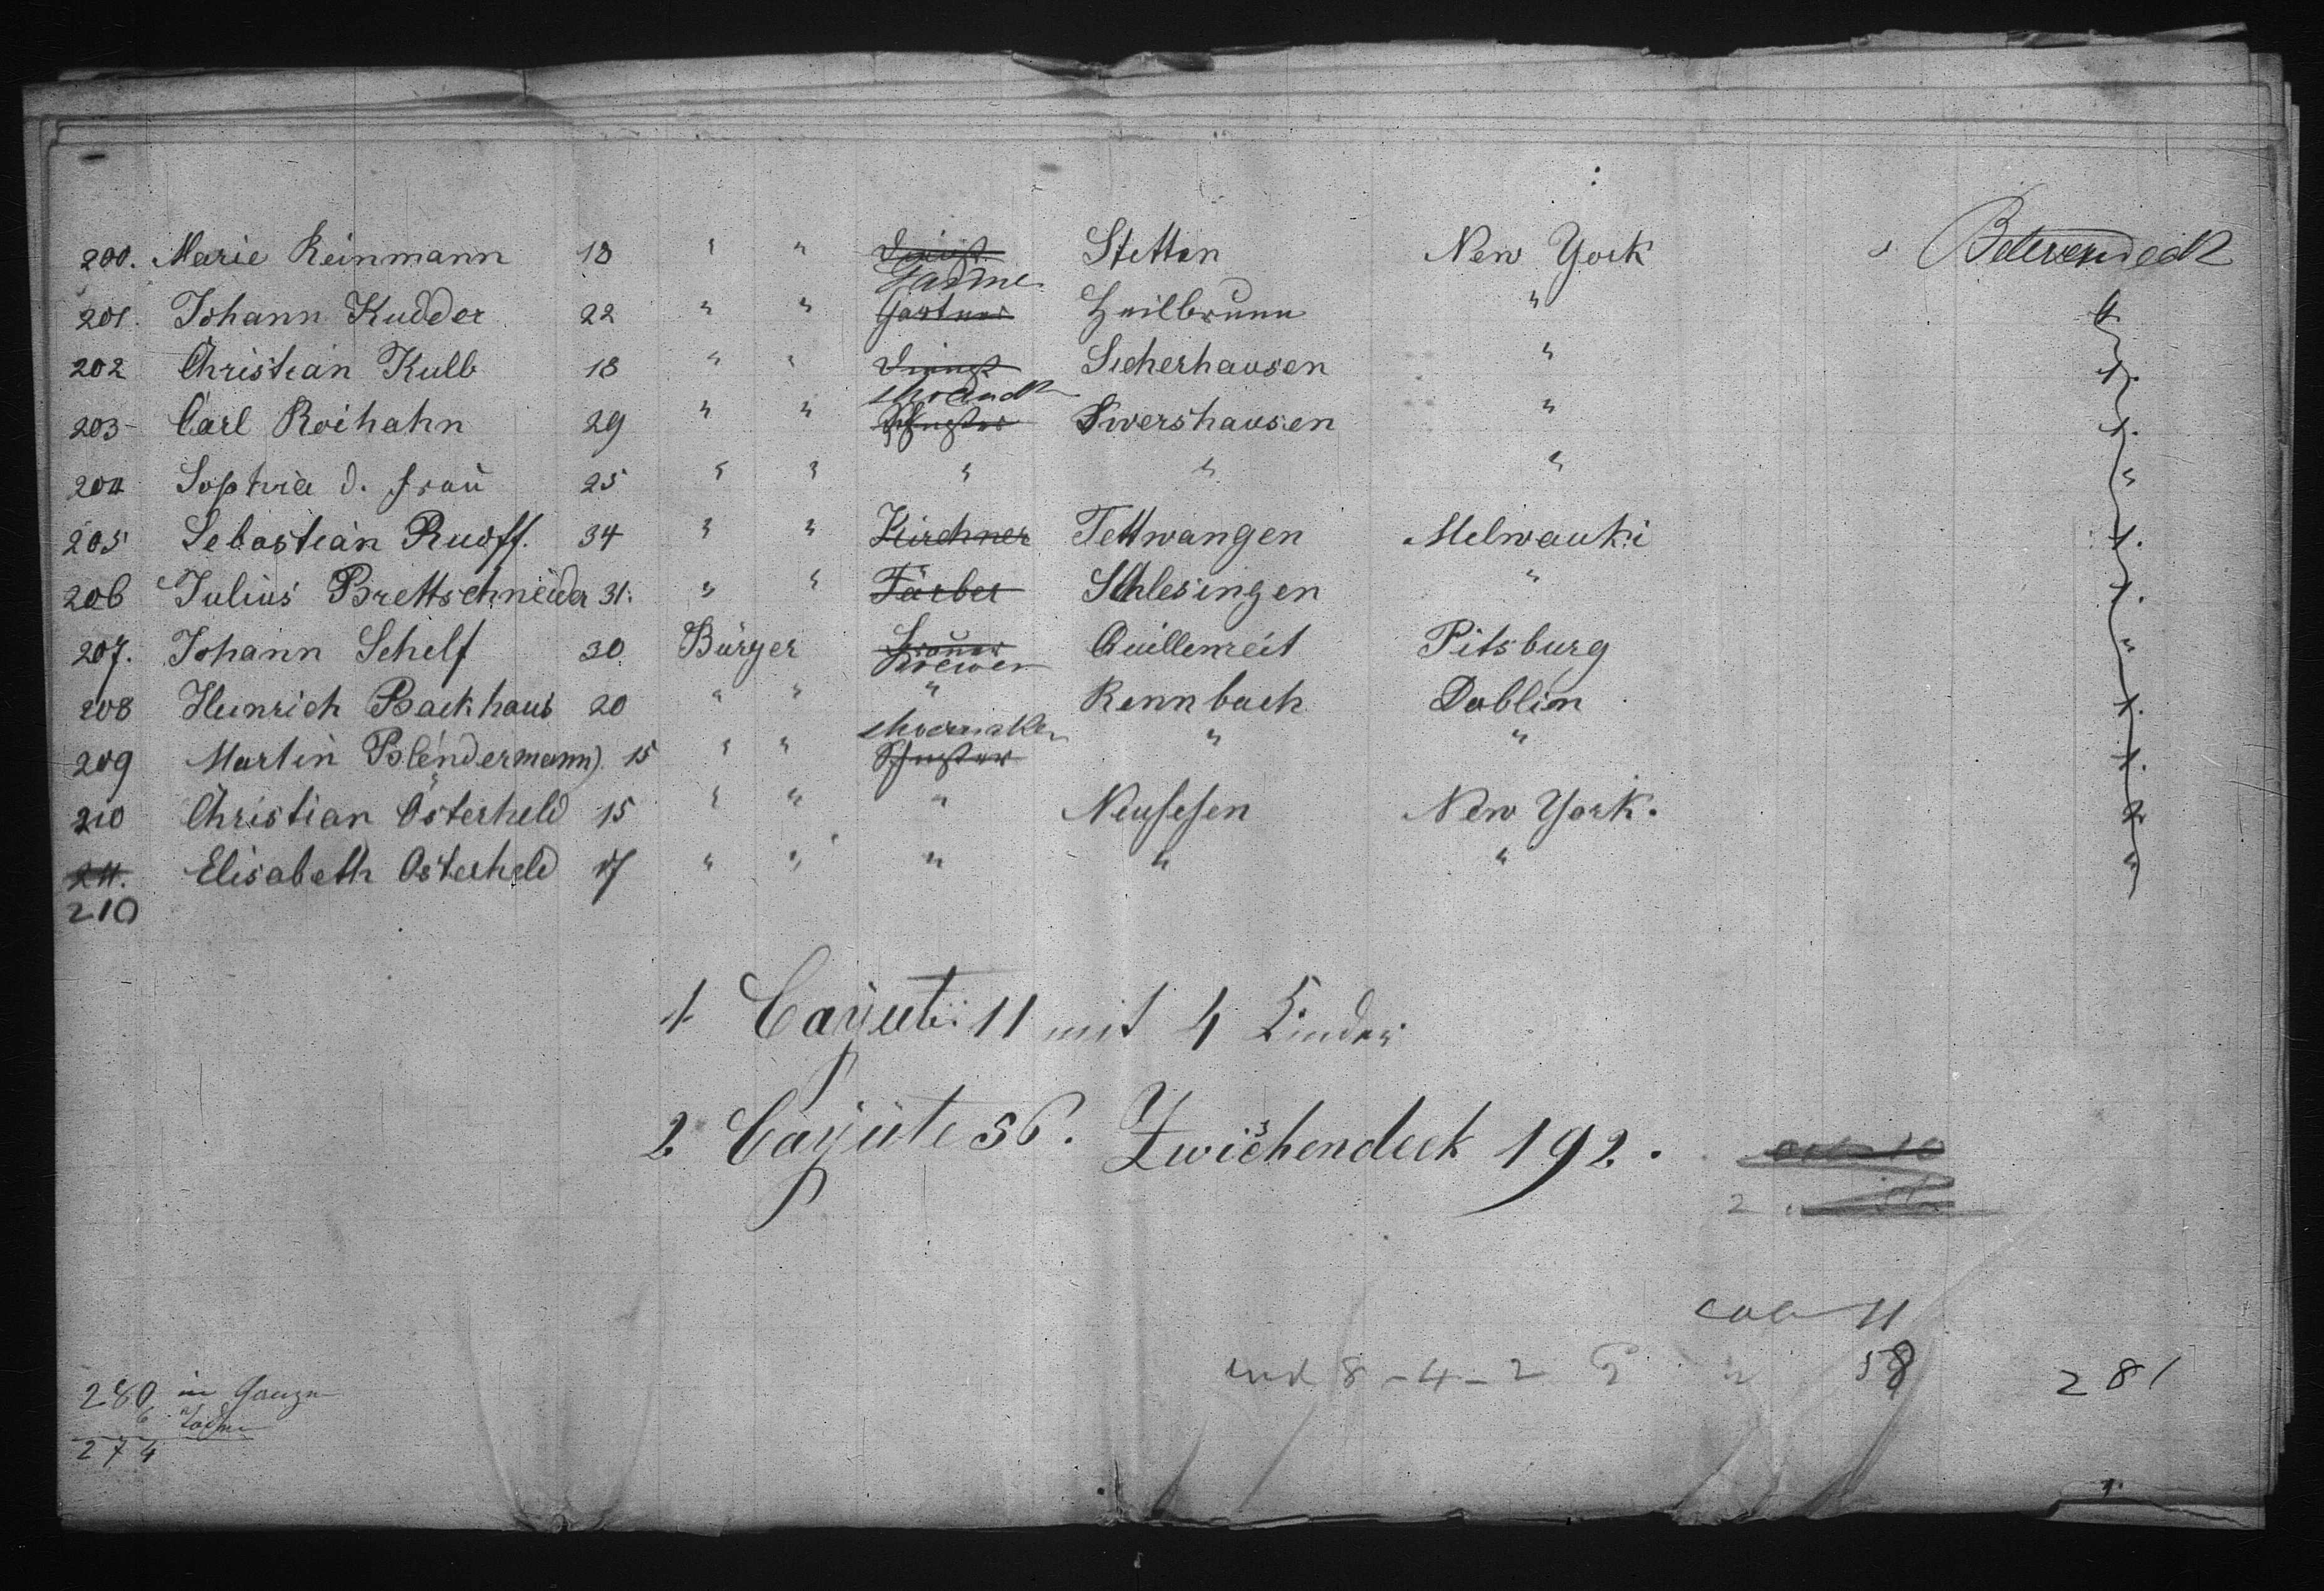 200. Marie Reinmann 18 " " Dienst Stetten New York Betweendeck
Farme
201. Johann Kudder 22 " " Gärtner Heilbrunn " 1.
202 Christian Kulb 18 " " Dienst Sicherhausen " 1.
203 Carl Roihahn 29 " " Schuster Swershausen " 1.
204 Sophia d. Frau 25 " " " " " "
205 Sebastian Ruoff. 34 " " Kirchner Tettwangen Melwauki 1.
206 Julius Brettschneider 31. " " Färber Schlesingen " 1.
207. Johann Schelf 30 Bürger Brauer Quillenreit Pitsburg "
Brewer
208 Heinrich Backhaus 20 " " " Rennbach Dublin 1.
209 Martin Blendermann 15 " " Schuster " " 1.
210 Christian Osterheld 15 " " " Neusesen New York. 2
211. Elisabeth Osterheld 17 " " " " " "
210
1. Cajüte: 11 mit 4 Kinder
2. Cajüte 56. Zwischendeck 192.
2.
cab 11
und 8 - 4 - 2 2 " 58 281
280 im Ganzen
6
274
1.